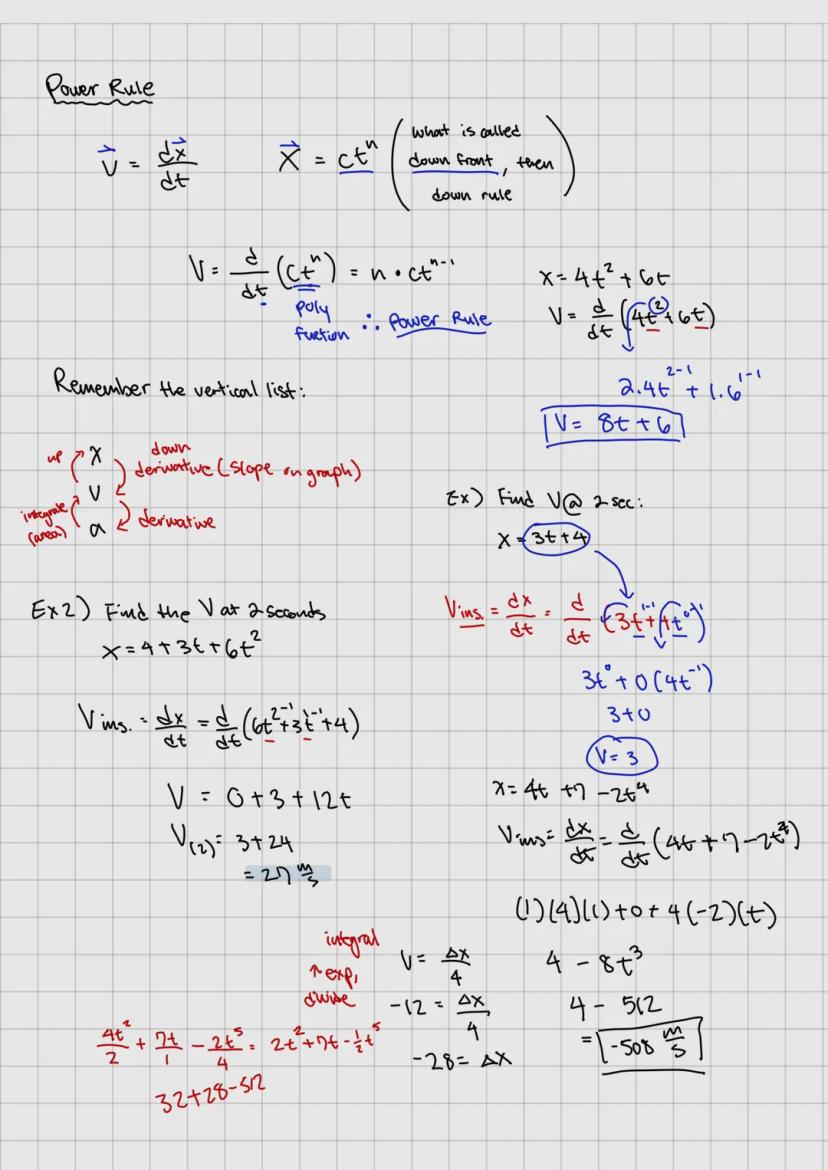 Power Rule
V = dx/dt    X = ctⁿ (what is called down front, then down rule)
V = d/dt (ctⁿ) = n · ctⁿ⁻¹
poly fuction ∴ Power Rule
x = 4t² + 6t
V = d/dt (4t² + 6t)
2.4t²⁻¹ + 1.6¹⁻¹
V = 8t + 6
Remember the vertical list:
up X down
derivative (slope on graph)
V
integrate (area) a derivative
Ex) Find V@ 2 sec:
x = 3t + 4
Vins. = dx/dt = d/dt (3t¹⁻¹ + 4t⁰⁻¹)
3t⁰ + 0(4t⁻¹)
3 + 0
V = 3
Ex 2) Find the V at 2 seconds
x = 4 + 3t + 6t²
Vins. = dx/dt = d/dt (6t²⁻¹ + 3t¹⁻¹ + 4)
V = 0 + 3 + 12t
V(2) = 3 + 24
= 27 m/s
x = 4t + 7 - 2t⁴
Vins = dx/dt = d/dt (4t + 7 - 2t
(1)(4)(1) + 0 + 4(-2)(t)
4 - 8t³
4 - 512
= -508 m/s
integral
↑ exp,
divise
V = Δx/4
-12 = Δx/4
-28 = Δx
4t²/2 + 7t/1 - 2t⁵/4 = 2t² + 7t - ½t⁵
32+28-512